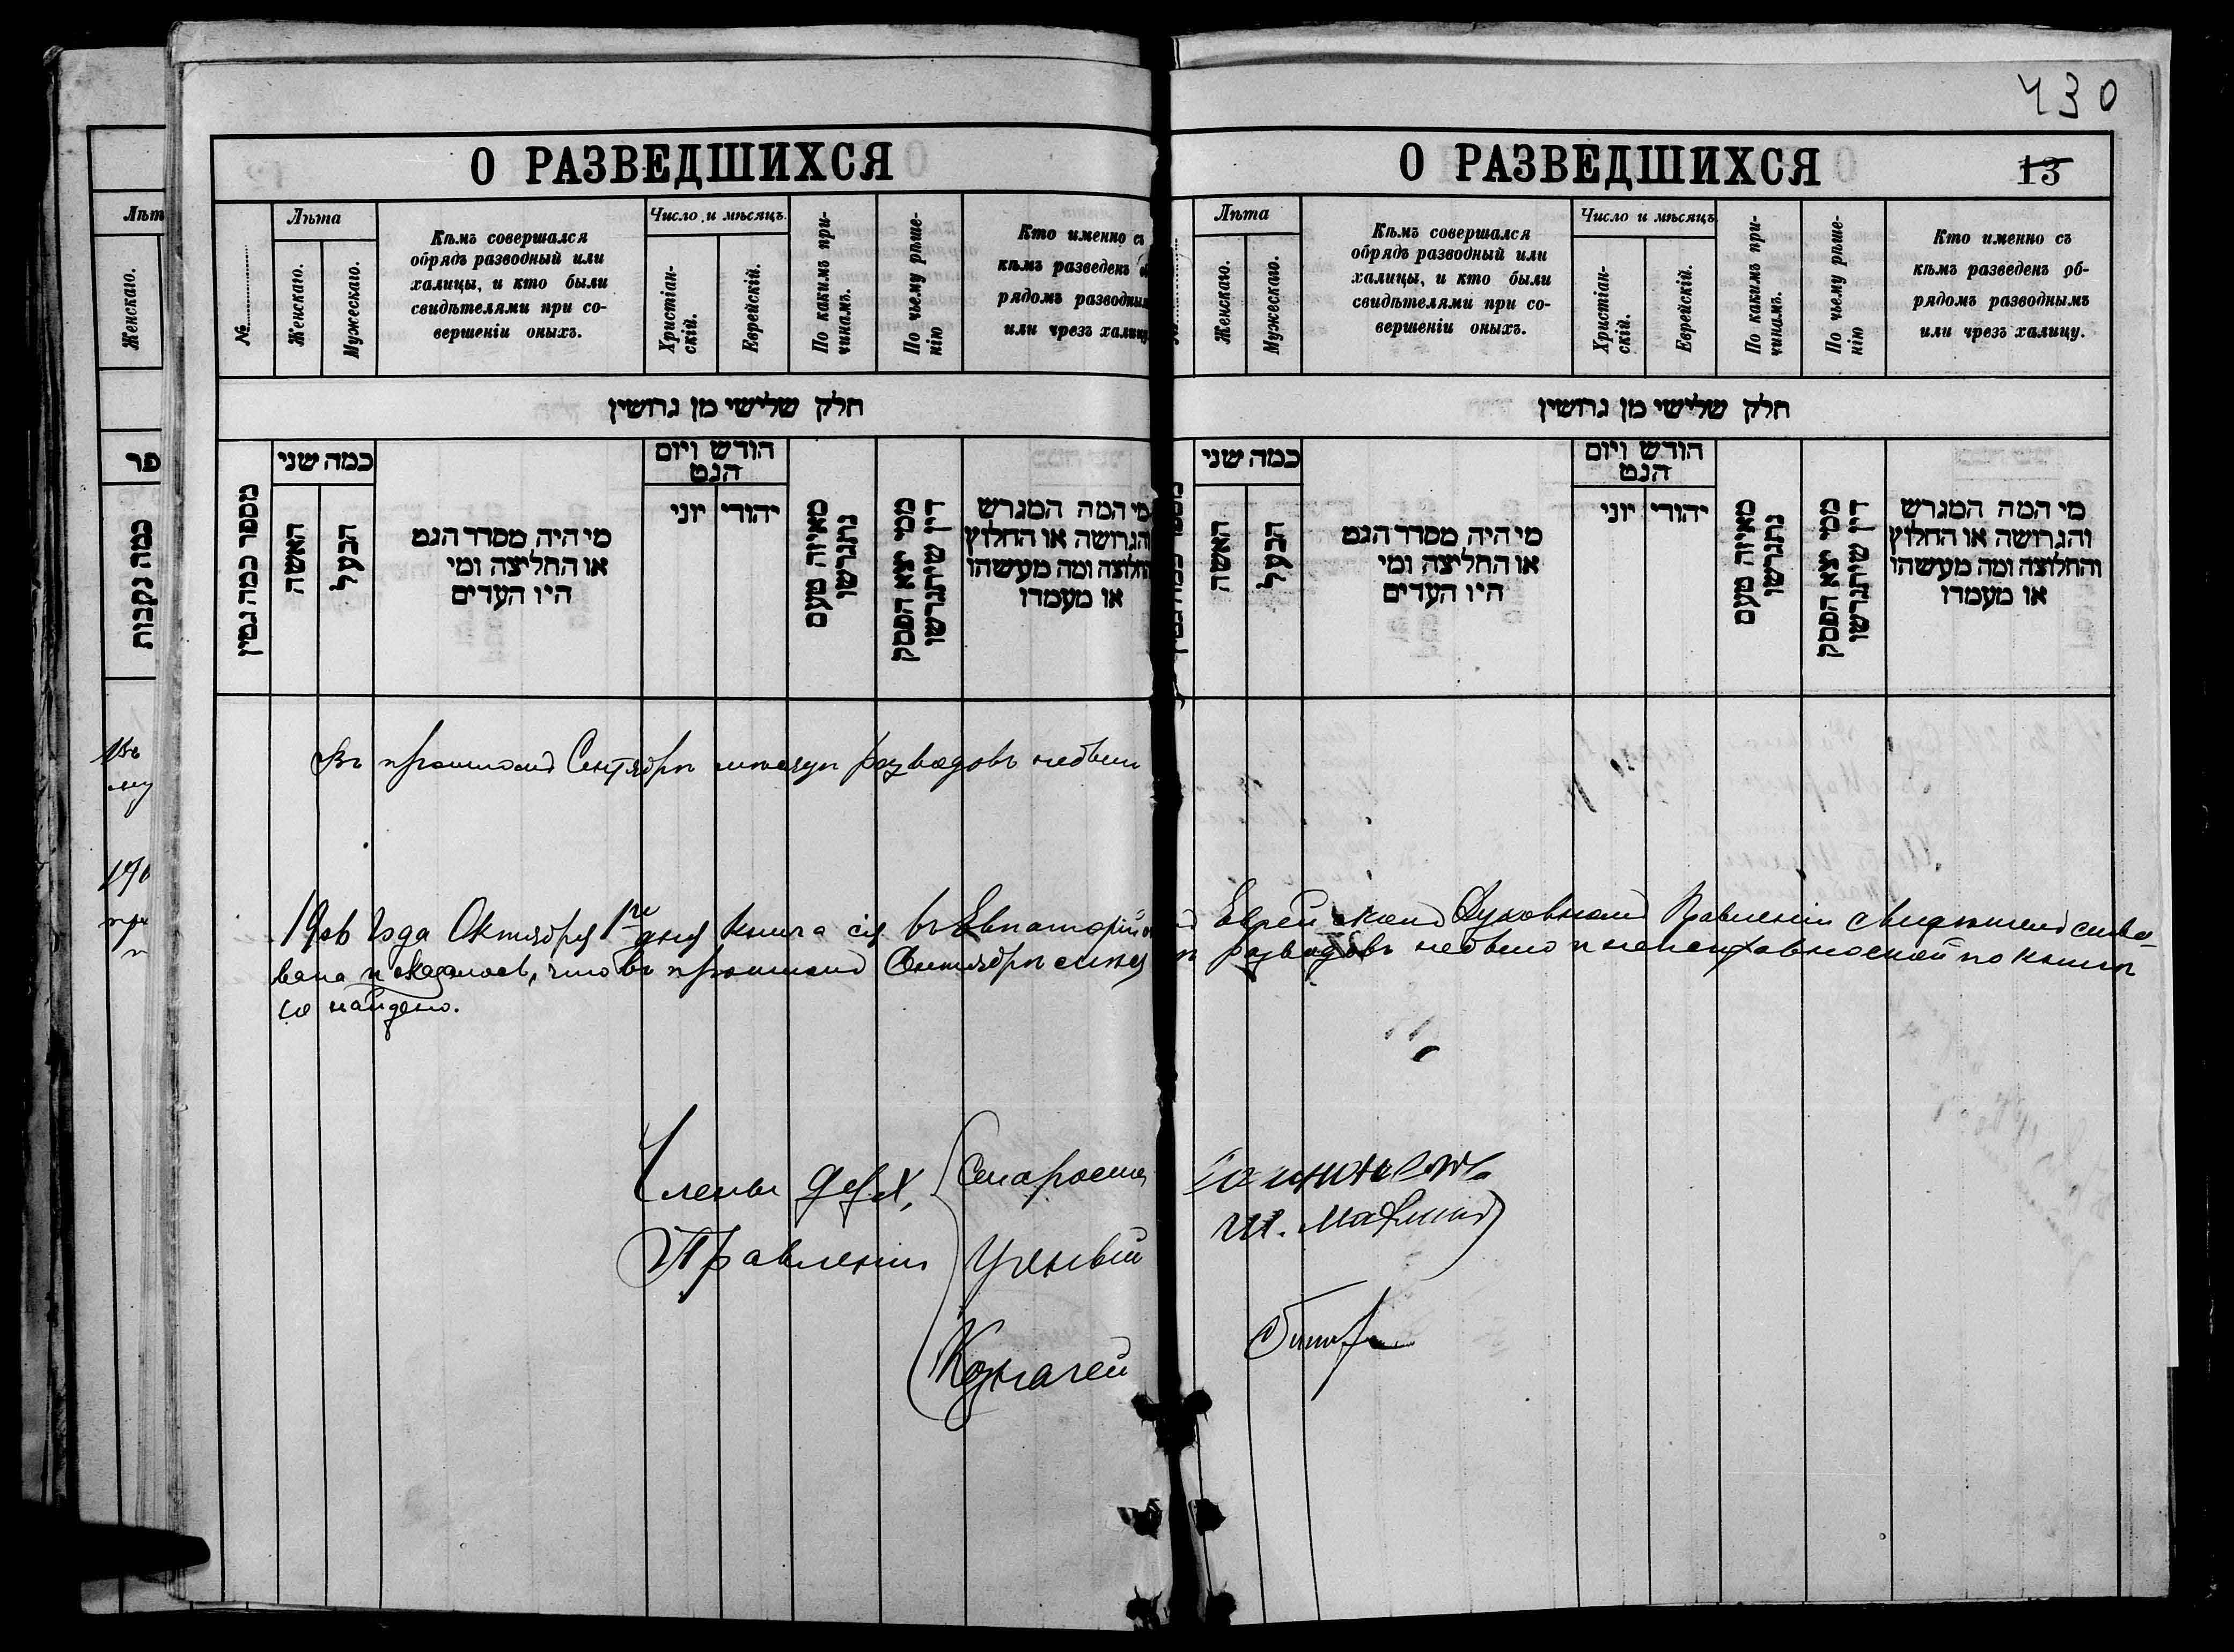 430
О РАЗВЕДШИХСЯ
№
Лѣта
Женскаго.
Мужескаго.
Кѣмъ совершался
обрядъ разводный или
халицы, и кто были
свидѣтелями при со-
вершеніи оныхъ.
Число и мѣсяцъ.
Христіан-
скій.
Еврейскій.
По какимъ при-
чинамъ.
По чьему рѣше-
нію
Кто именно съ
кѣмъ разведенъ
рядомъ разводным
или чрезъ халиц
חלק שלישי מן גרושין
מספר כמה גטין
כמה שני
האשה
הבעל
מי היה מסדר הגט
או החליצה ומי
היו העדים
הודש ויום
הגט
יהודי יוני
מאיזה טעם
נתגרשו
ממי יצא הפסק
דין שיתגרשו
מי המה המגרש
והגרושה או החלוץ
והחלוצה ומה מעשהו
או מעמדו
Въ прошломъ Сентябрѣ мѣсяцѣ разводовъ небыло
1906 года Октября 1го дня книга сія въ Евпаторійск
вана и оказалось, что въ прошломъ Сентябрѣ мѣсяц
не найдено.
Члены Дух. Староста
Правленія Ученый
Казначей
О РАЗВЕДШИХСЯ
13
Лѣта
Женскаго.
Мужескаго.
Кѣмъ совершался
обрядъ разводный или
халицы, и кто были
свидѣтелями при со-
вершеніи оныхъ.
Число и мѣсяцъ
Христіан-
скій.
Еврейскій.
По какимъ при-
чинамъ.
По чьему рѣше-
нію
Кто именно съ
кѣмъ разведенъ об-
рядомъ разводнымъ
или чрезъ халицу.
חלק שלישי מן גרושין
כמה שני
האשה
הבעל
מי היה מסדר הגט
או החליצה ומי
היו העדים
הודש ויום
הגט
יהודי יוני
מאיזה טעם
נתגרשו
ממי יצא הפסק
דין שיתגרשו
מי המה המגרש
והגרושה או החלוץ
והחלוצה ומה מעשהו
או מעמדו
Еврейскомъ Духовномъ Правленіи свидѣтельство-
разводовъ небыло и неисправностей по книгѣ
Лѣт
Женскаго.
פר
כמה נקבות